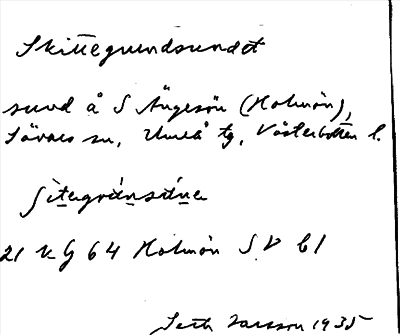 Skittegrundsundet
sund å S Ängesön (Holmön),
Sävars sn, Umeå tg, Västerbotten l.
21 K G 64 Holmön S V b1
Seth Larsson 1935